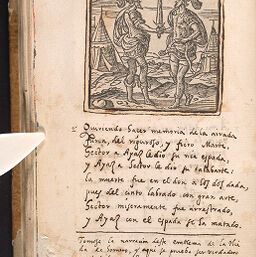 Queriendo hacer memoria de la airada
furia, del riguroso, y fiero Marte,
Hector a Ayax le dio su rica espada,
y Ayax a Hector le dio su talabarte:
la muerte fue en el don a los dos dada,
pues del cinto labrado con gran arte,
Hector miseramente fue arrastrado,
y Ayax con el espada se ha matado.
Tomose la narración deste emblema de la Ilia
da de Homero, y aqui se prueba ser verdadero